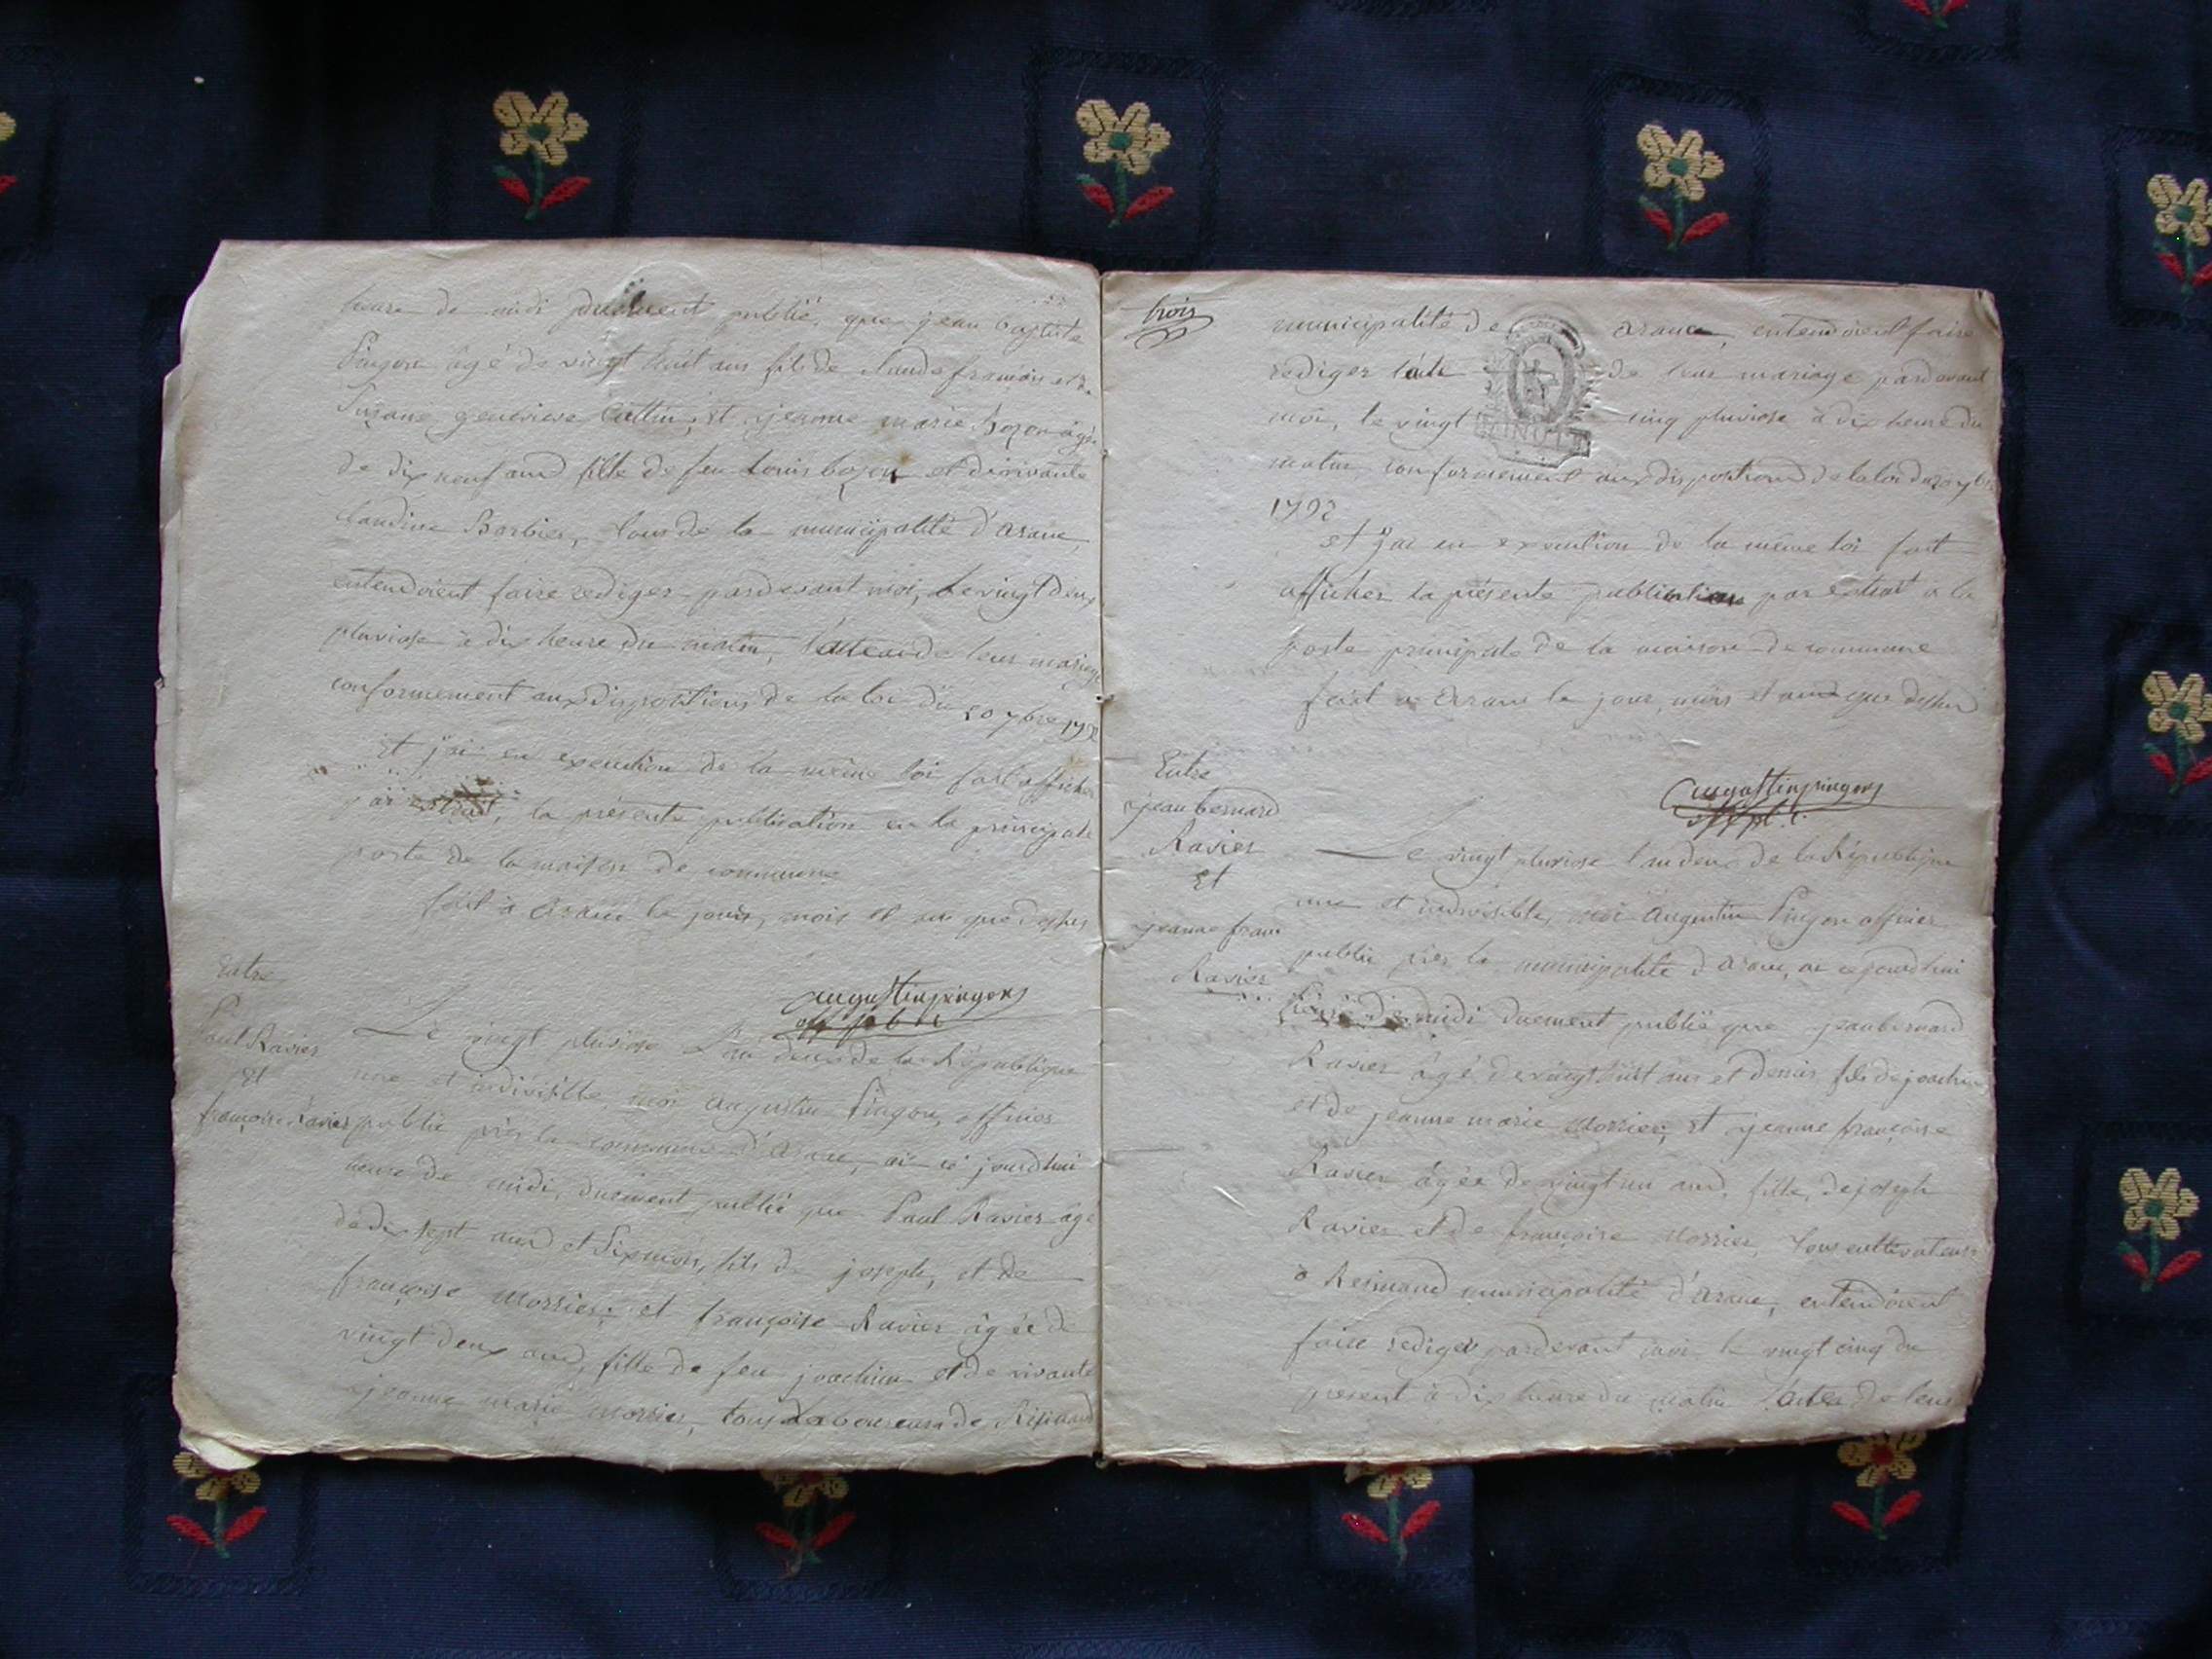 heure de midi duement publié, que jean baptiste
Pingon âgé de vingt huit ans fils de Claude françois et de
Suzane genevieve Cattin, Et jeanne marie Bozon âgée
de dix neuf ans fille de feu Louis bozon et de vivante
Claudine Barbier, tous de la municipalité d'arane,
entendoient faire rediger pardevant moi, le vingt deux
pluviose à dix heure du matin, l'acte de leur mariage
conformement aux dispositions de la loi du 20 7bre 1792
Et j'ai en execution de la même loi fait afficher
par extrait, la présente publication en la principale
porte de la maison de commune
fait à arane le jour, mois et an que dessus
augustin pingon
off. public
Entre
Paul Ravier
Et
françoise Ravier
Le vingt pluviose L'an deux de la République
une et indivisible, moi augustin Pingon, officier
public près la commune d'arane, ai ce jourdhui
heure de midi, duement publié que Paul Ravier âgé
de dix sept ans et six mois, fils de joseph, et de
françoise Morrier; et françoise Ravier âgée de
vingt deux ans, fille de feu joachim et de vivante
jeanne marie Morrier, tous Laboureurs de Résinand
trois
municipalité de arane, entendoient faire
rediger l'acte de leur mariage pardevant
moi, le vingt cinq pluviose à dix heure du
matin, conformement aux dispositions de la loi du 20 7bre
1792
et j'ai en execution de la même loi fait
afficher la présente publication par extrait à la
porte principale de la maison de commune
fait à arane le jour, mois et an que dessus
augustin pingon
Entre
jean bernard
Ravier
Et
jeanne franc
Ravier
Le vingt pluviose l'an deux de la République
une et indivisible, moi augustin Pingon officier
public près la municipalité d'arane, ai ce jourdhui
heure de midi duement publié que jean bernard
Ravier âgé de vingt huit ans et demis fils de joachim
et de jeanne marie Morrier; et jeanne françoise
Ravier âgée de vingt un ans, fille, de joseph
Ravier et de françoise Morrier, tous cultivateurs
à Resinand municipalité d'arane, entendoient
faire rediger pardevant moi le vingt cinq du
present à dix heure du matin l'acte de leur